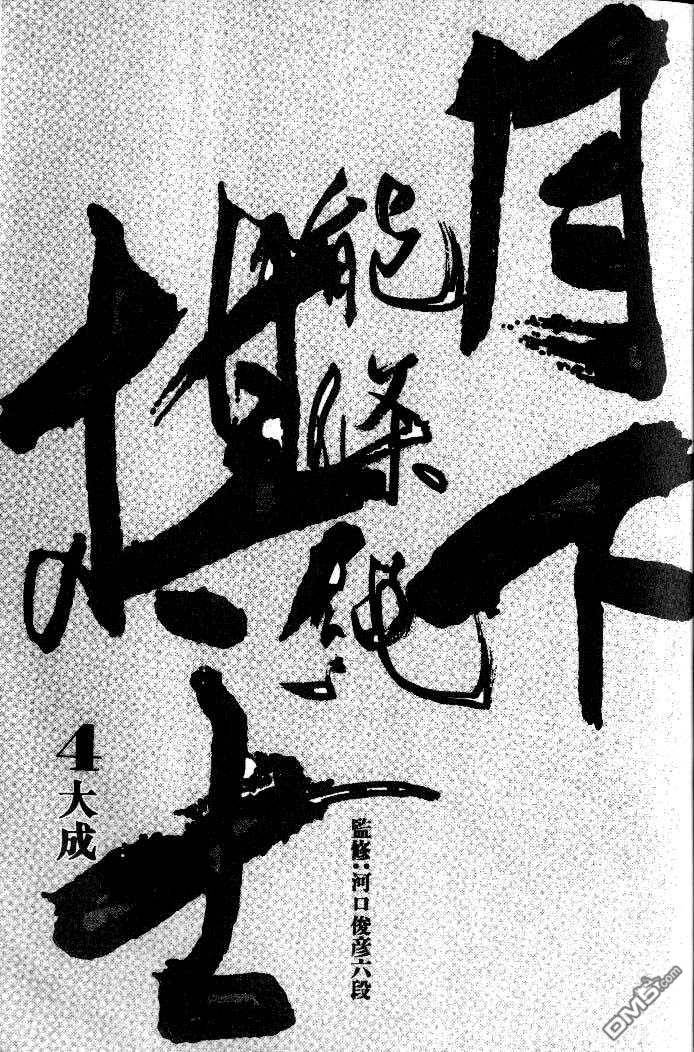 月下
棋士
能條純一
4 大成
監修:河口俊彦六段
DM5.com